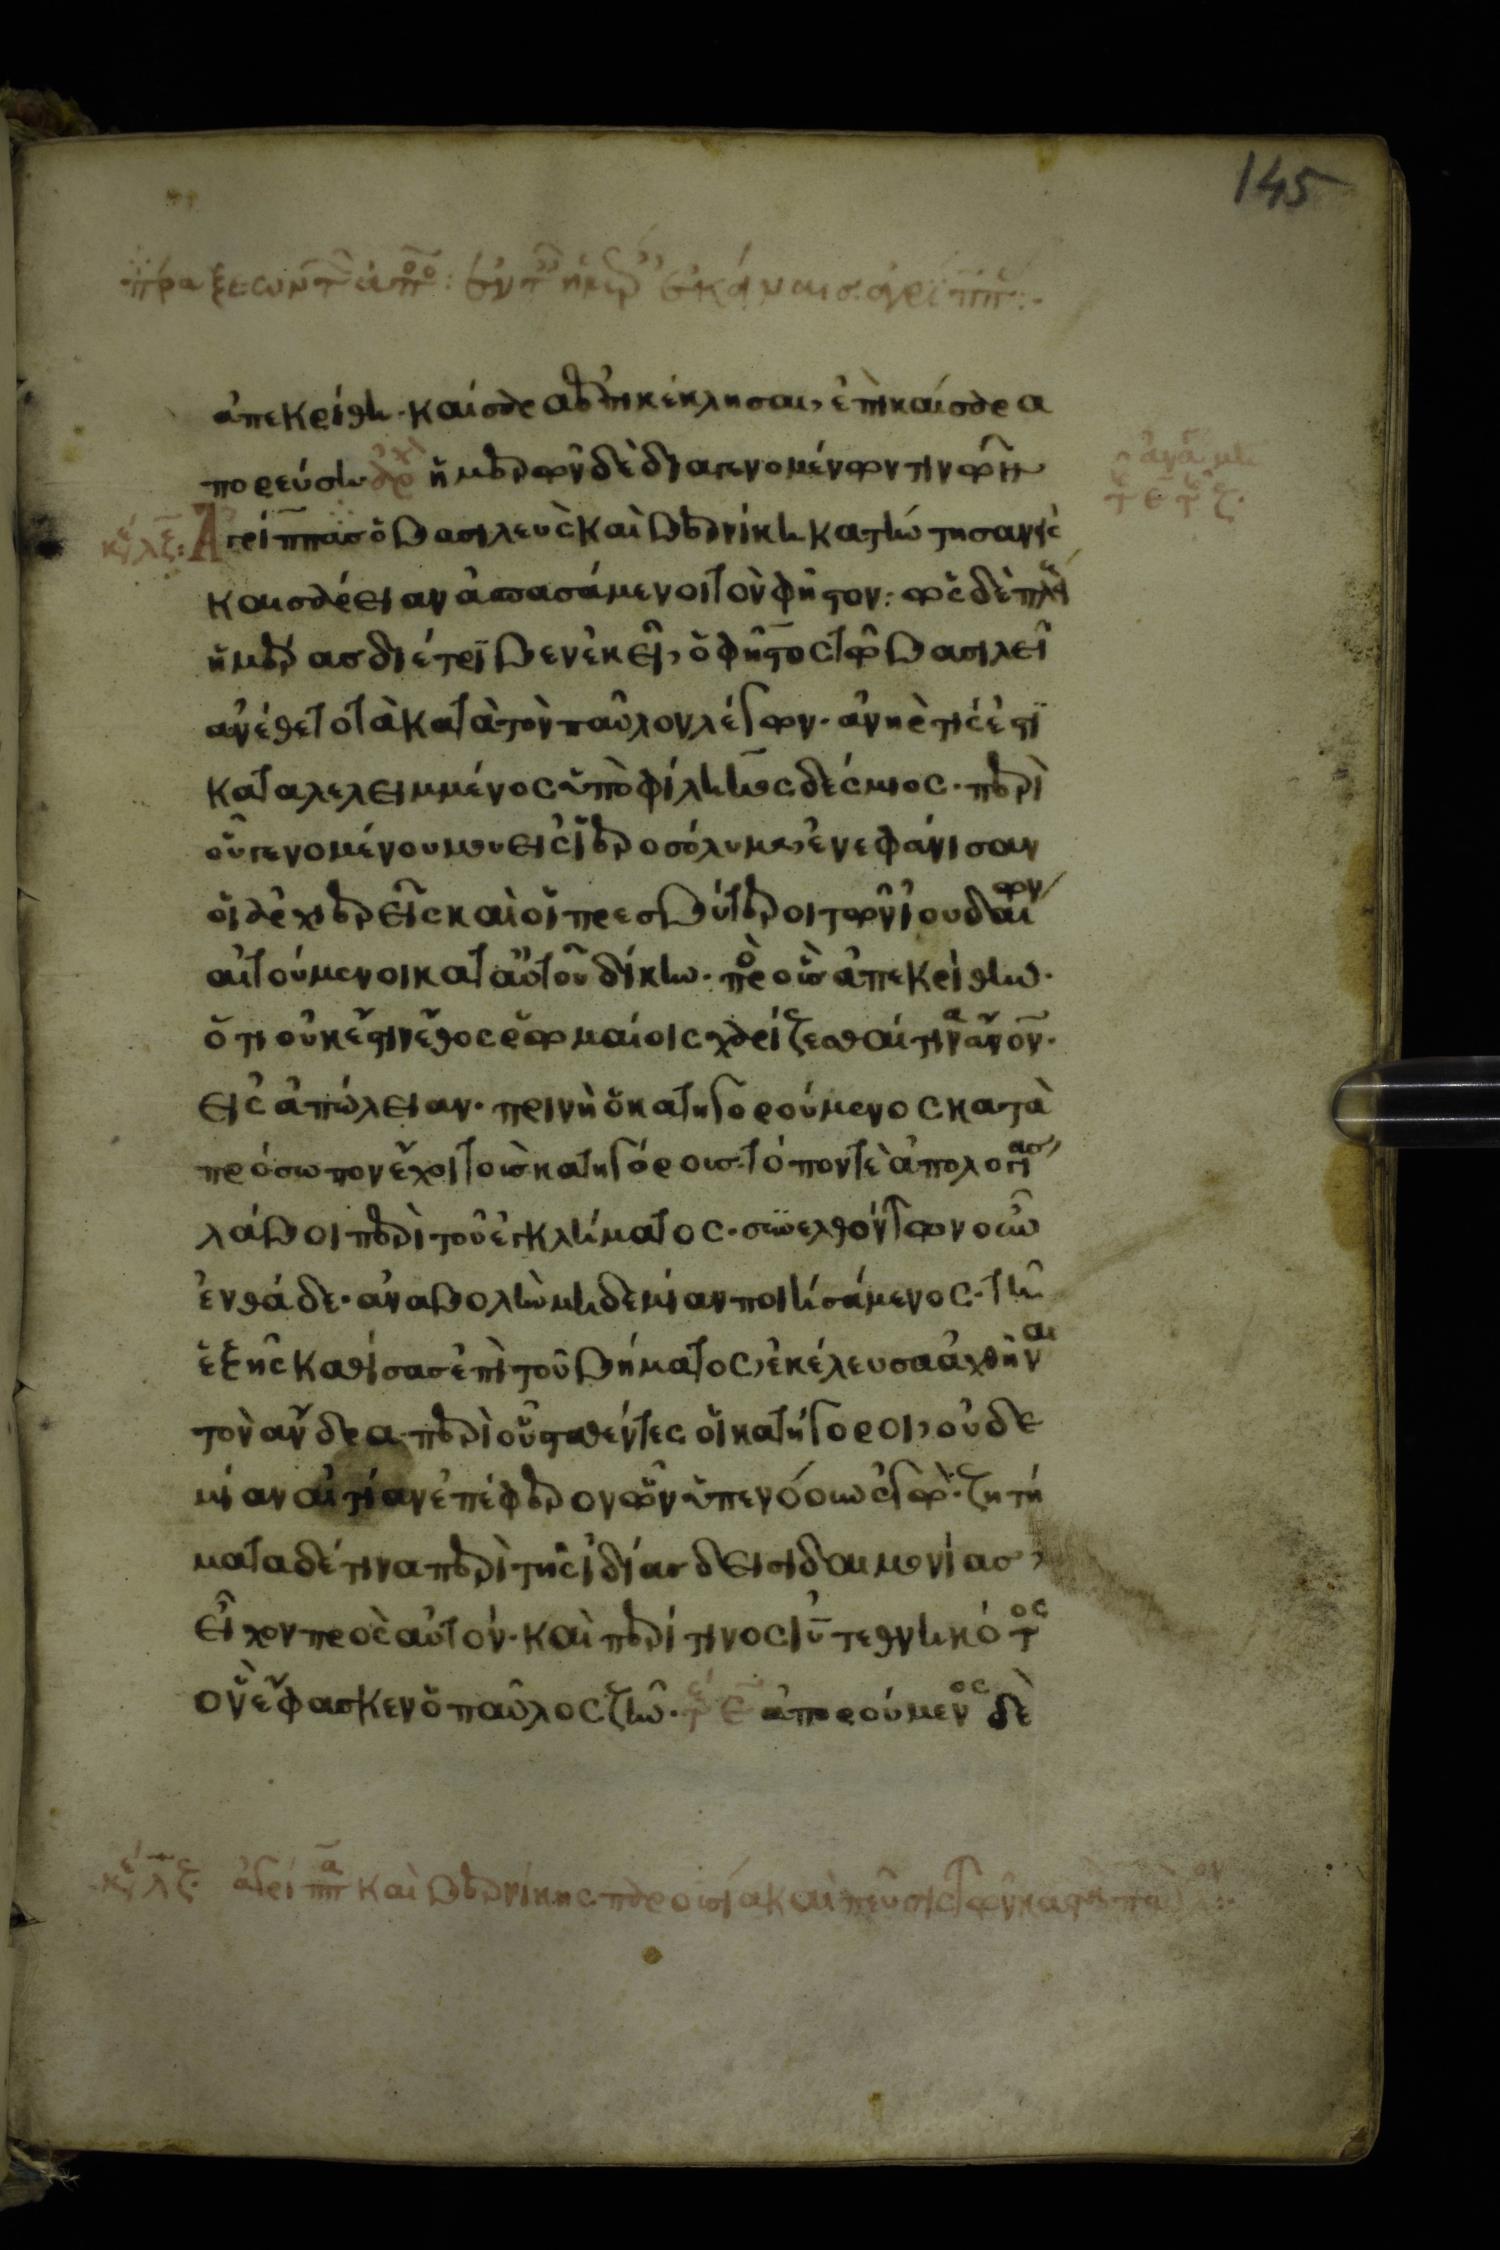 145
πράξεων τῶν ἀπο
ἀπεκρίθη· καίσαρα ἐπικέκλησαι, ἐπὶ καίσαρα
πορεύση ἀρχ ἡμερῶν δὲ διαγενομένων τινῶν
κε λζ: Ἀγρίππας ὁ βασιλεὺς καὶ βερνίκη κατήντησαν εἰς
καισάρειαν ἀσπασάμενοι τὸν φῆστον: ὡς δὲ πλεί
ἡμέρας διέτριβεν ἐκεῖ, ὁ φῆστος τῷ βασιλεῖ
ἀνέθετο τὰ κατὰ τὸν παῦλον λέγων· ἀνὴρ τίς ἐστι
καταλελειμμένος ὑπὸ φίληκος δέσμιος· περὶ
οὗ γενομένου μου εἰς ἱεροσόλυμα, ἐνεφάνισαν
οἱ ἀρχιερεῖς καὶ οἱ πρεσβύτεροι τῶν ἰουδαίων
αἰτούμενοι κατ αὐτοῦ δίκην· πρὸς οὓς ἀπεκρίθην·
ὅτι οὐκ ἔστιν ἔθος ῥωμαίοις χαρίζεσθαί τινα ἄνον·
εἰς ἀπώλειαν· πρινὴ ὁ κατηγορούμενος κατὰ
πρόσωπον ἔχοι τοὺς κατηγόρους· τόπον τὲ ἀπολογίας
λάβοι περὶ τοῦ ἐγκλήματος· συνελθόντων οὖν
ἐνθάδε· ἀναβολὴν μηδεμίαν ποιησάμενος· τῆ
ἑξῆς καθίσας ἐπὶ τοῦ βήματος, ἐκέλευσα ἀχθῆναι
τὸν ἄνδρα· περὶ οὗ σταθέντες οἱ κατήγοροι, οὐδε
μίαν αἰτίαν ἐπέφερον ὧν ὑπενόουν ἐγὼ· ζητή
ματα δέ τινα περὶ τῆς ἰδίας δεισιδαιμονίας,
εἶχον πρὸς αὐτόν· καὶ περί τινος ιυ τεθνηκότος
ὃν ἔφασκεν ὁ παῦλος ζῆν· ἀπορούμενος δὲ
κε λζ· ἀγρίππα καὶ βερνίκης παρουσία καὶ πεῦσις τῶν κατὰ παῦλον: